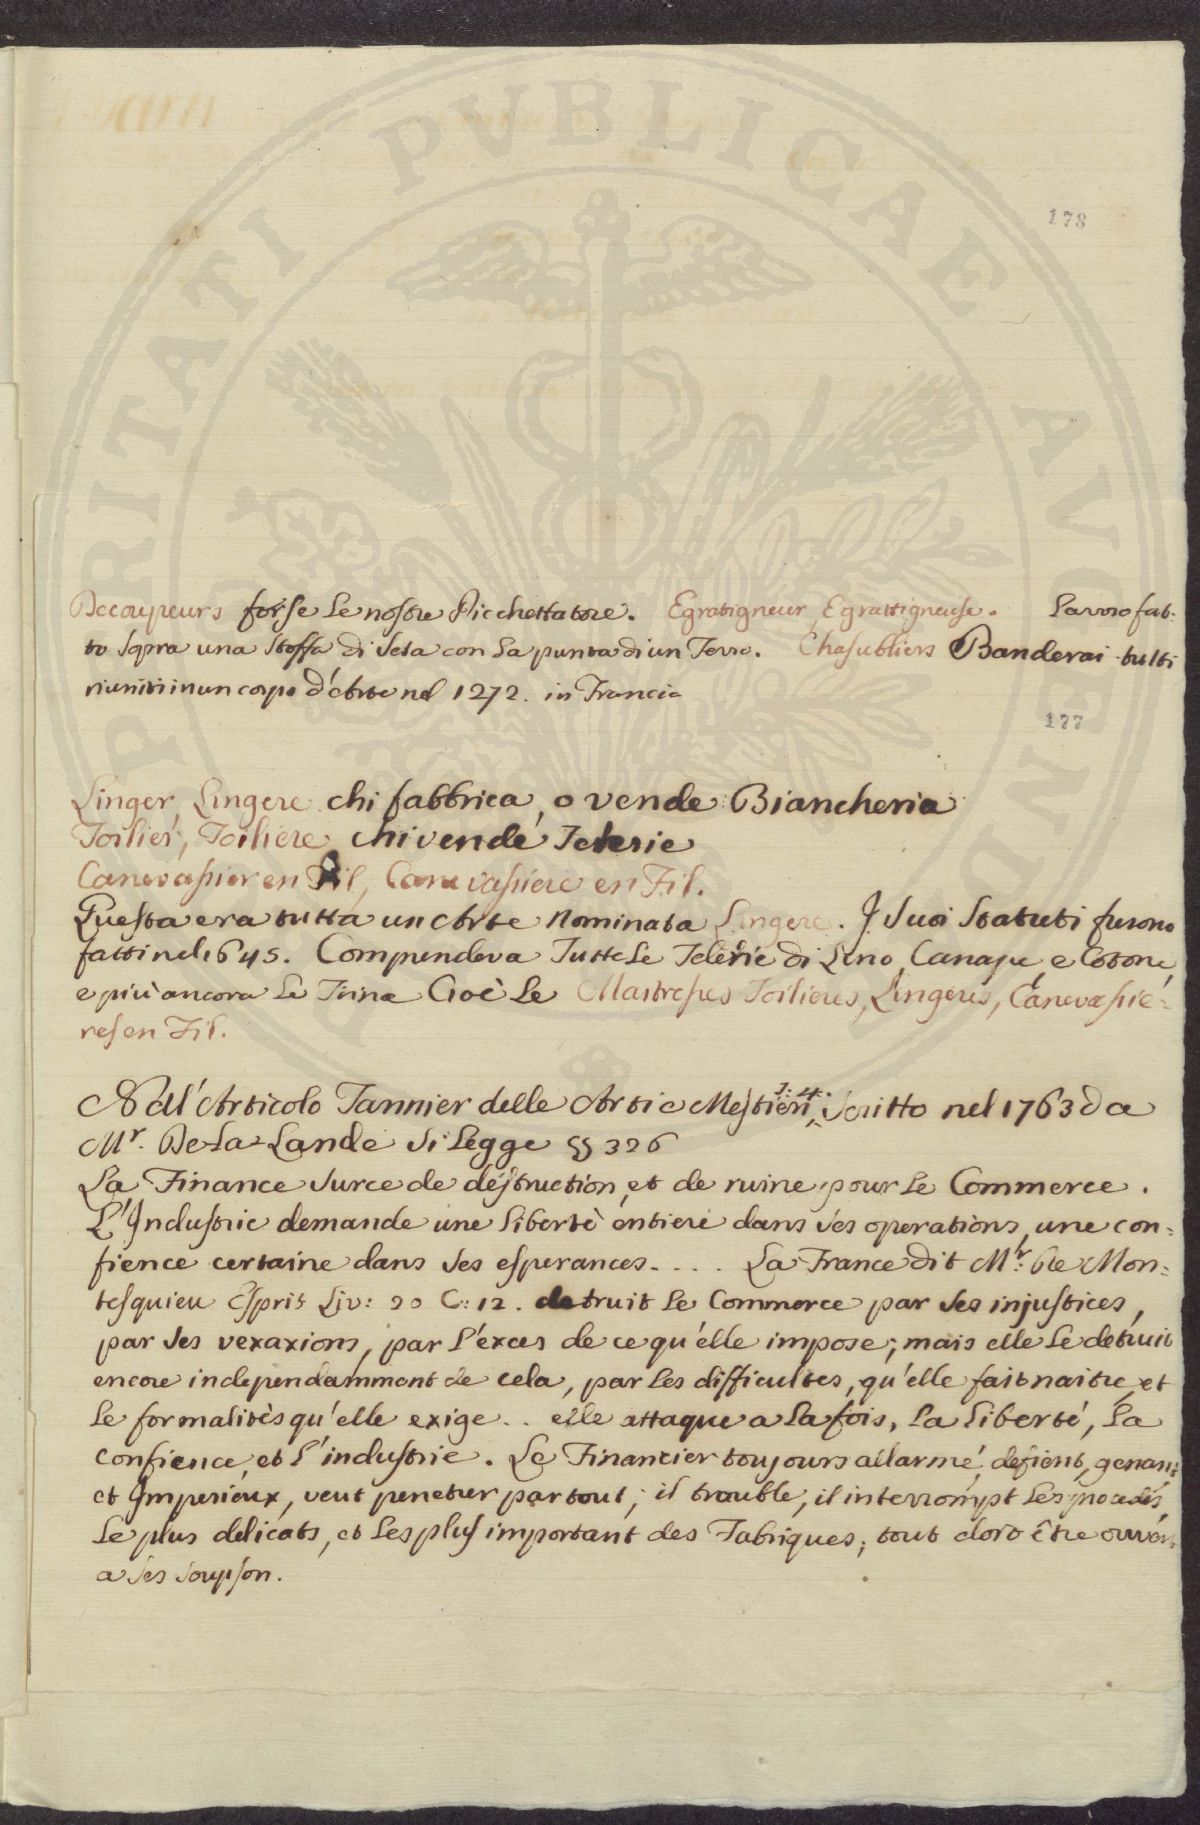 PROSPERITATI PVBLICAE AVGENDAE
178
Decoupeurs forse le nostre Picchettatore. Egratigneur, Egrattigneuse. Lavoro fat-
to sopra una stoffa di seta con la punta di un Ferro. Chasubliers Banderai tutti
riuniti in un corpo d'Arte nel 1272. in Francia
177
Linger, Lingere chi fabbrica, o vende Biancheria
Toilier, Toiliere chi vende Telerie
Canevassier en Fil, Canevassiere en Fil.
Questa era tutta un Arte Nominata Lingere. I suoi Statuti furono
fatti nel 1645. Comprendeva Tutte le Telerie di Lino, Canape, e Cotone,
e più ancora le Trine Cioè le Maitresses Toilieres, Lingeres, Canevassie=
res en Fil.
Nell'Articolo Tannier delle Arti e Mestieri, T: 4: scritto nel 1763 da
Mr. De La Lande si legge §§ 326
La Finance surce de déstruction, et de ruine pour le Commerce.
L'Industrie demande une libertè entiere dans ses operations, une con=
fience certaine dans ses esperances.... La France dit Mr: De Mon=
tesquieu Esprit Liv: 20 C: 12. detruit le Commerce par ses injustices,
par ses vexaxions, par l'exces de ce qu'elle impose; mais elle le detruit
encore independamment de cela, par les difficultes, qu'elle fait naitre, et
le formalitès qu'elle exige.. elle attaque a la fois, la liberté, la
confience, et l'industrie. Le Financier toujours allarmé, defient, genant
et Imperieux, veut penetrer par tout; il trouble, il interrompt les procedés,
le plus delicats, et les plus important des Fabriques; tout doro être ouver=
a ses soupson.